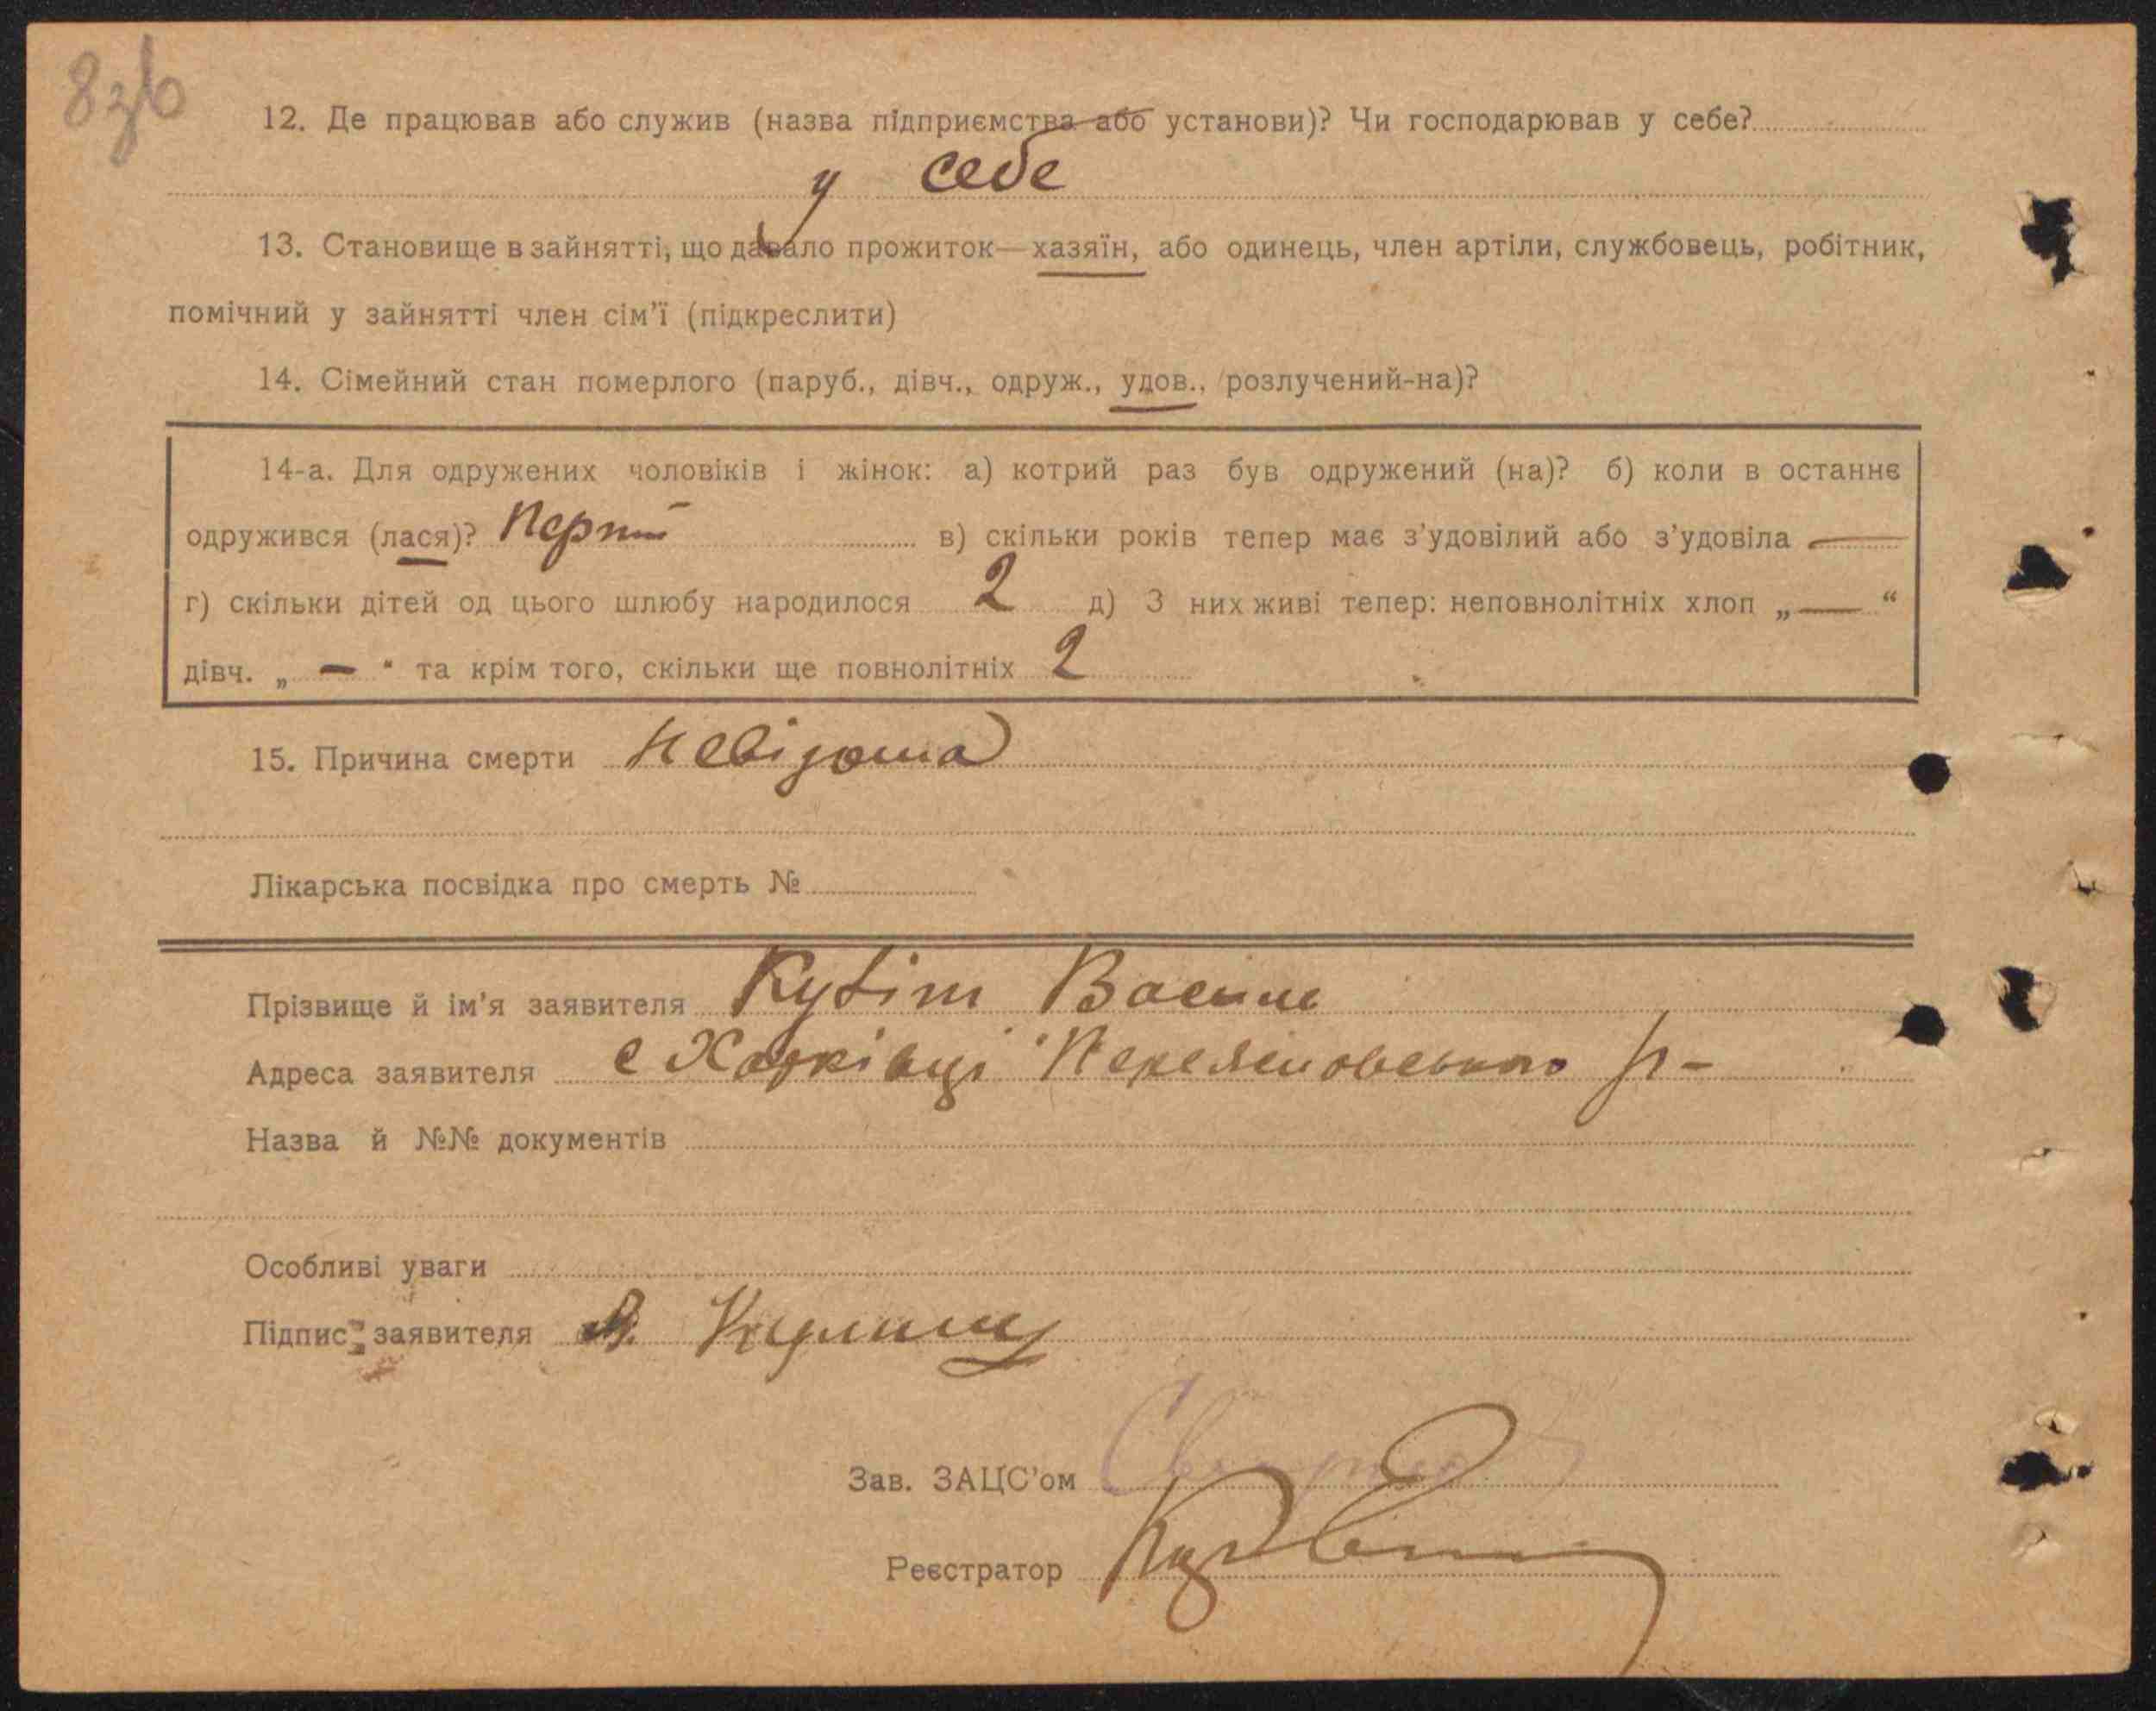 12. Де працював або служив (назва підприємства або установи)? Чи господарював у себе?
у себе
13. Становище в зайнятті, що давало прожиток—хазяїн, або одинець, член артіли, службовець, робітник,
помічний у зайнятті член сім'ї (підкреслити)
14. Сімейний стан померлого (паруб., дівч., одруж., удов., розлучений-на)?
14-а. Для одружених чоловіків і жінок: а) котрий раз був одружений (на)? б) коли в останнє
одружився (лася)? в) скільки років тепер має з'удовілий або з'удовіла —
г) скільки дітей од цього шлюбу народилося 2 д) З них живі тепер: неповнолітніх хлоп „ — “
дівч. „ — “ та крім того, скільки ще повнолітніх 2
15. Причина смерти Невідома
Лікарська посвідка про смерть №
Прізвище й ім'я заявителя Василь
Адреса заявителя с Харківці р-
Назва й №№ документів
Особливі уваги
Підпис заявителя
Зав. ЗАЦС'ом
Реєстратор